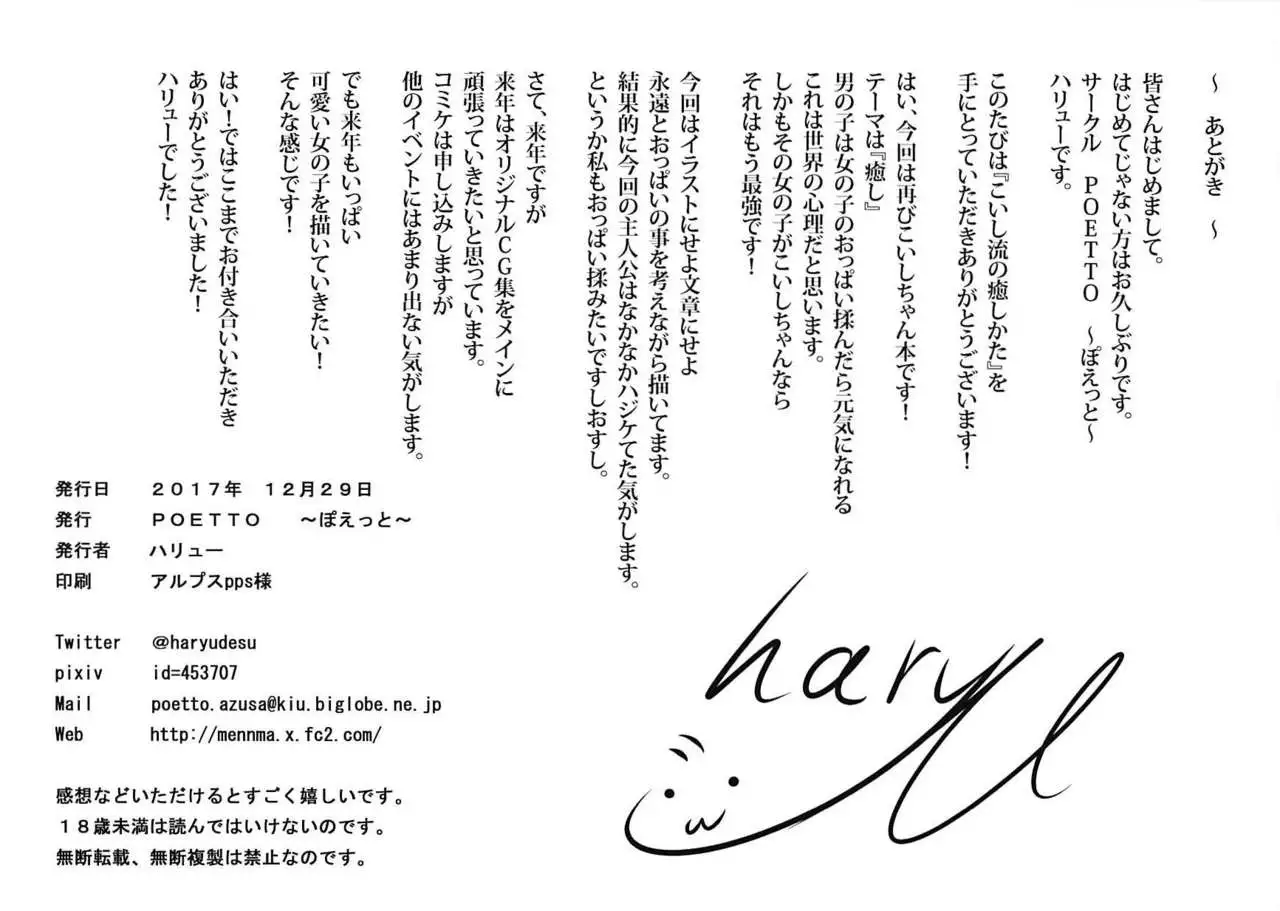 ～　あとがき　～
皆さんはじめまして。
はじめてじゃない方はお久しぶりです。
サークル　ＰＯＥＴＴＯ　～ぽえっと～
ハリューです。
このたびは『こいし流の癒しかた』を
手にとっていただきありがとうございます！
はい、今回は再びこいしちゃん本です！
テーマは『癒し』
男の子は女の子のおっぱい揉んだら元気になれる
これは世界の心理だと思います。
しかもその女の子がこいしちゃんなら
それはもう最強です！
今回はイラストにせよ文章にせよ
永遠とおっぱいの事を考えながら描いてます。
結果的に今回の主人公はなかなかハジケてた気がします。
というか私もおっぱい揉みたいですしおすし。
さて、来年ですが
来年はオリジナルＣＧ集をメインに
頑張っていきたいと思っています。
コミケは申し込みしますが
他のイベントにはあまり出ない気がします。
でも来年もいっぱい
可愛い女の子を描いていきたい！
そんな感じです！
はい！ではここまでお付き合いいただき
ありがとうございました！
ハリューでした！
発行日　２０１７年　１２月２９日
発行　ＰＯＥＴＴＯ　～ぽえっと～
発行者　ハリュー
印刷　アルプスpps様
Twitter　@haryudesu
pixiv　id=453707
Mail　poetto.azusa@kiu.biglobe.ne.jp
Web　http://mennma.x.fc2.com/
感想などいただけるとすごく嬉しいです。
１８歳未満は読んではいけないのです。
無断転載、無断複製は禁止なのです。
haryu